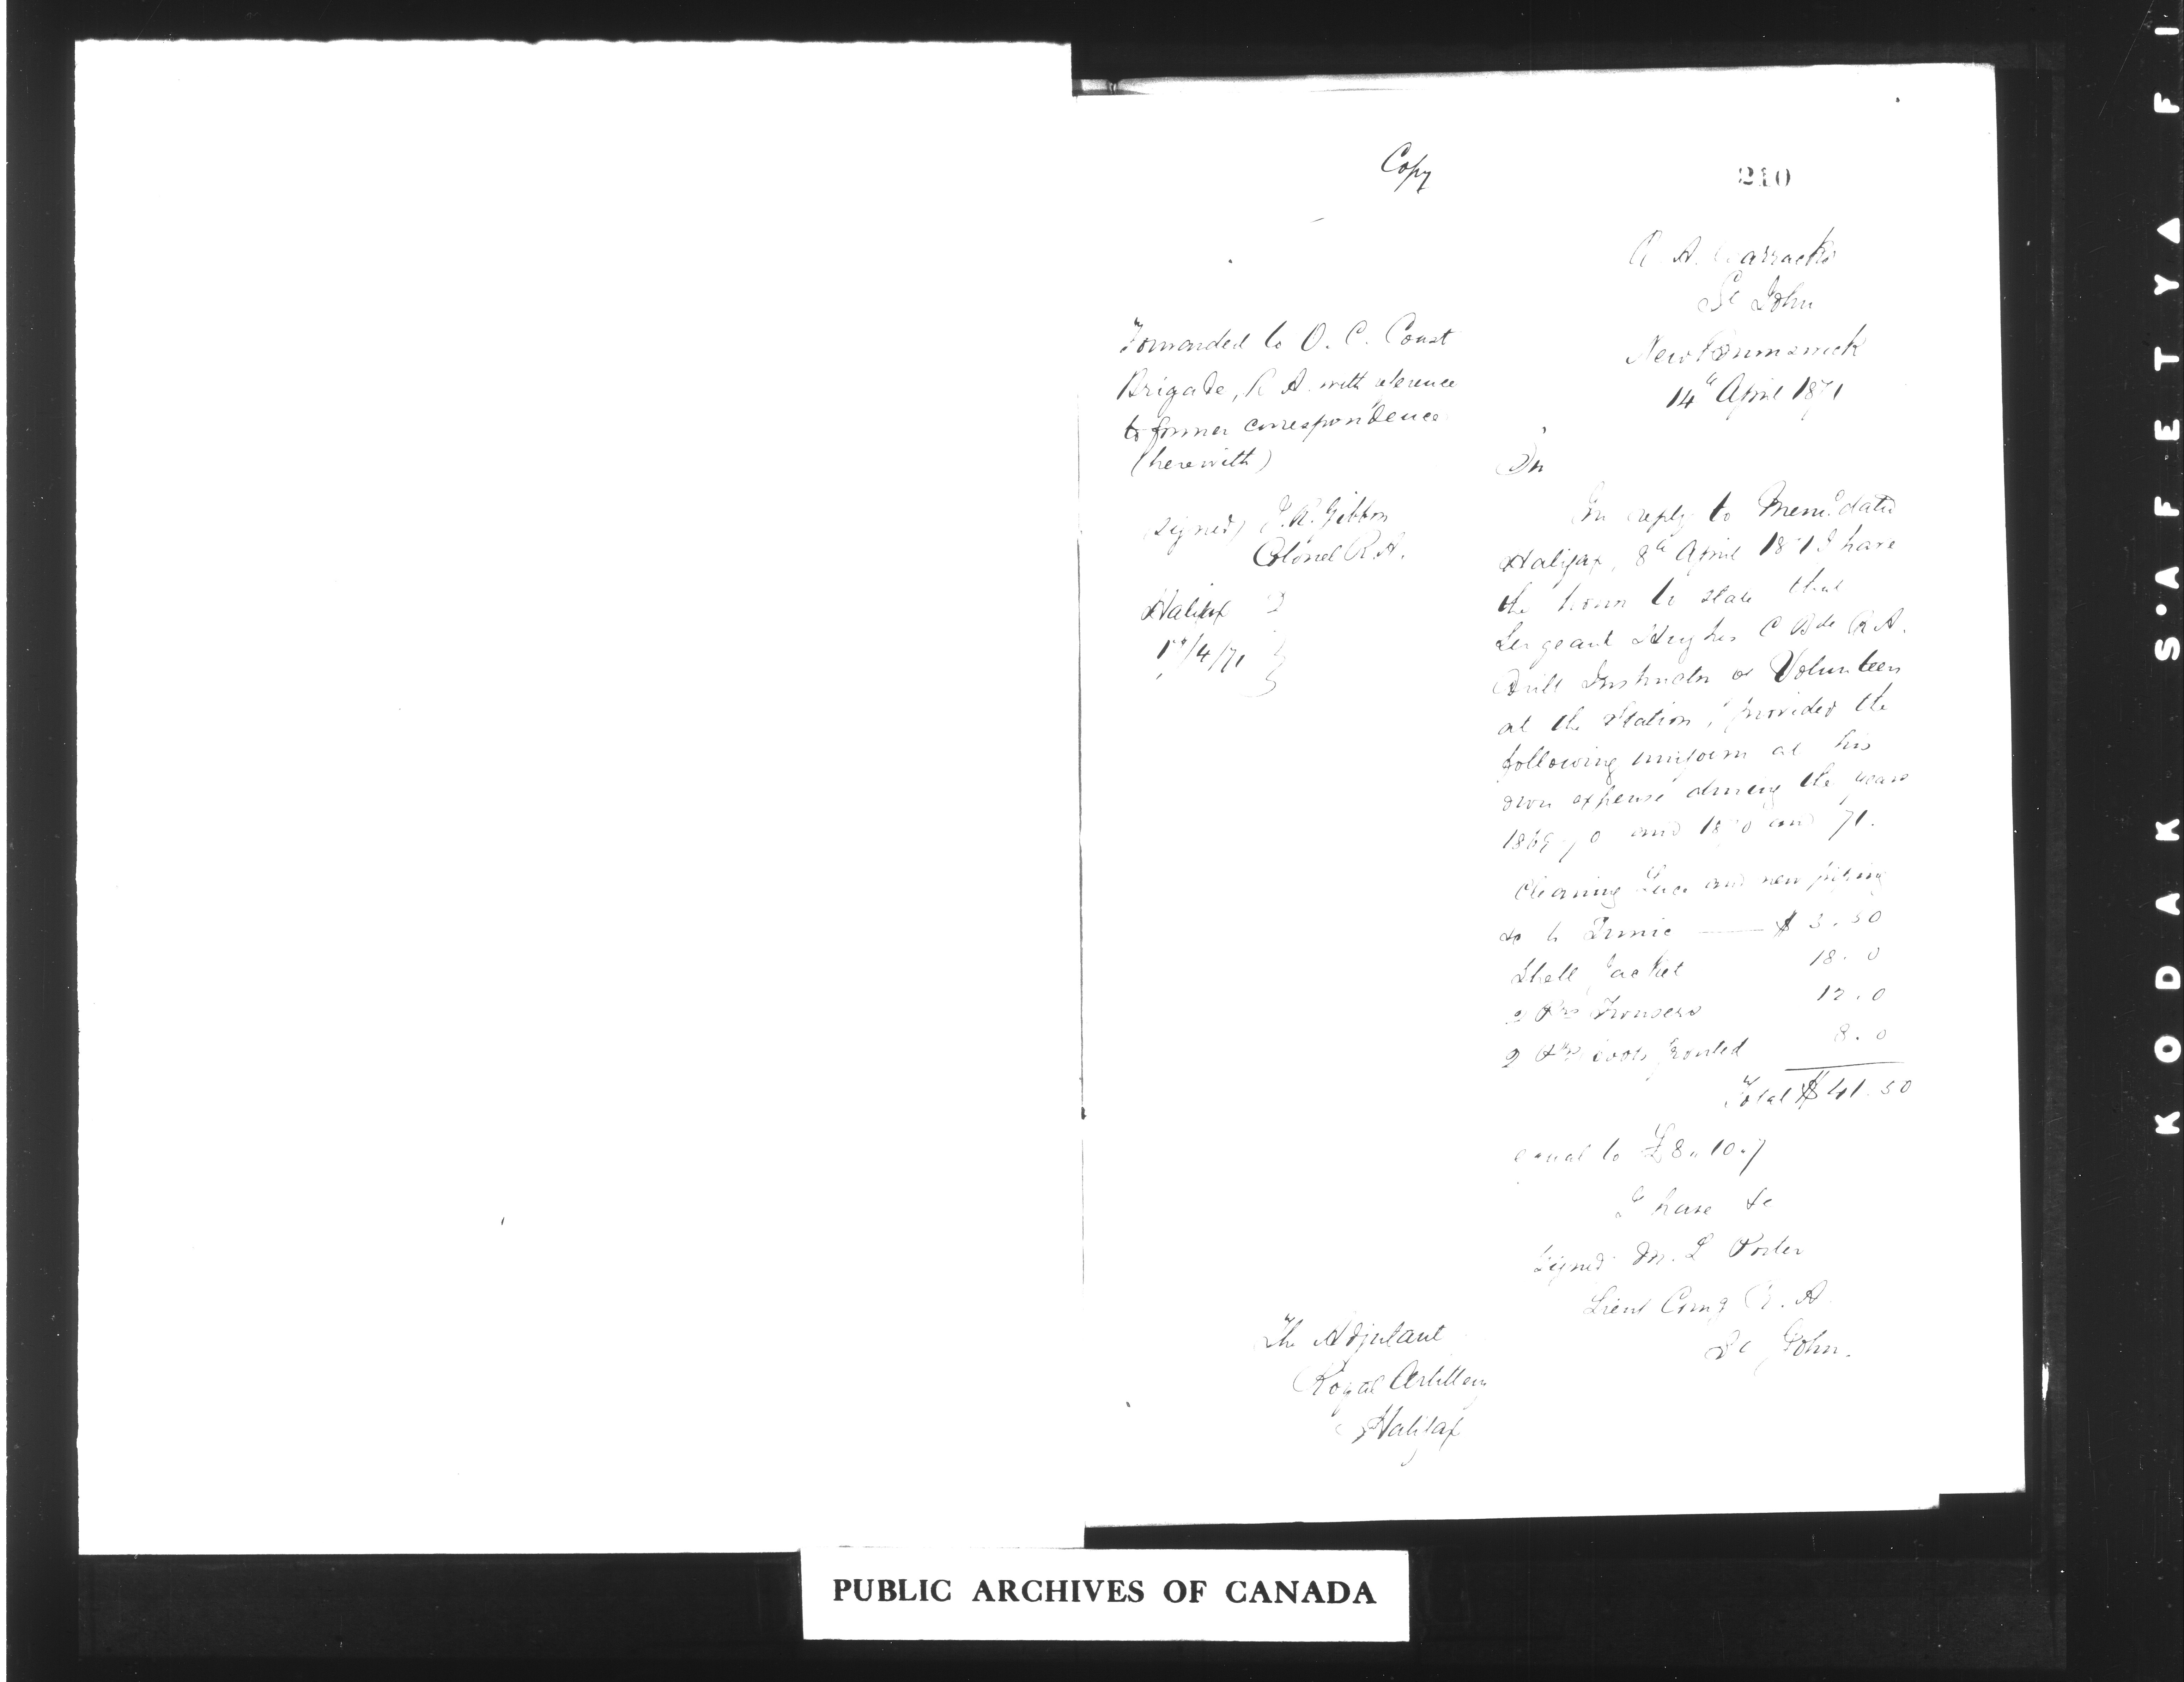 Copy
210
R. A. Barracks
St John
New Brunswick
14th April 1871
Forwarded to O. C. Coast
Brigade, R A. with reference
to former correspondence
(herewith)
signed) J. R. Gibbon
Colonel R.A.
Halifax
/4/71
Sir
In reply to Memo dated
Halifax, 8th April 1871 I have
the honor to state that
Sergeant Hughes C Bde R.A.
Drill Instructor of Volunteers
at the Station, provided the
following uniform at his
own expense during the years
1869-70 and 1870 and 71.
Cleaning lace and new piping
&c to Tunic — $ 3.50
Shell Jacket 18.0
2 Prs Trousers 12.0
2 Prs boots fronted 8.0
Total $41.50
equal to £8.10.7
I have &c
Signed M. L Porter
Lieut Comg R.A.
St John.
The Adjutant
Royal Artillery
Halifax
PUBLIC ARCHIVES OF CANADA
KODAK S'AFETY A FI